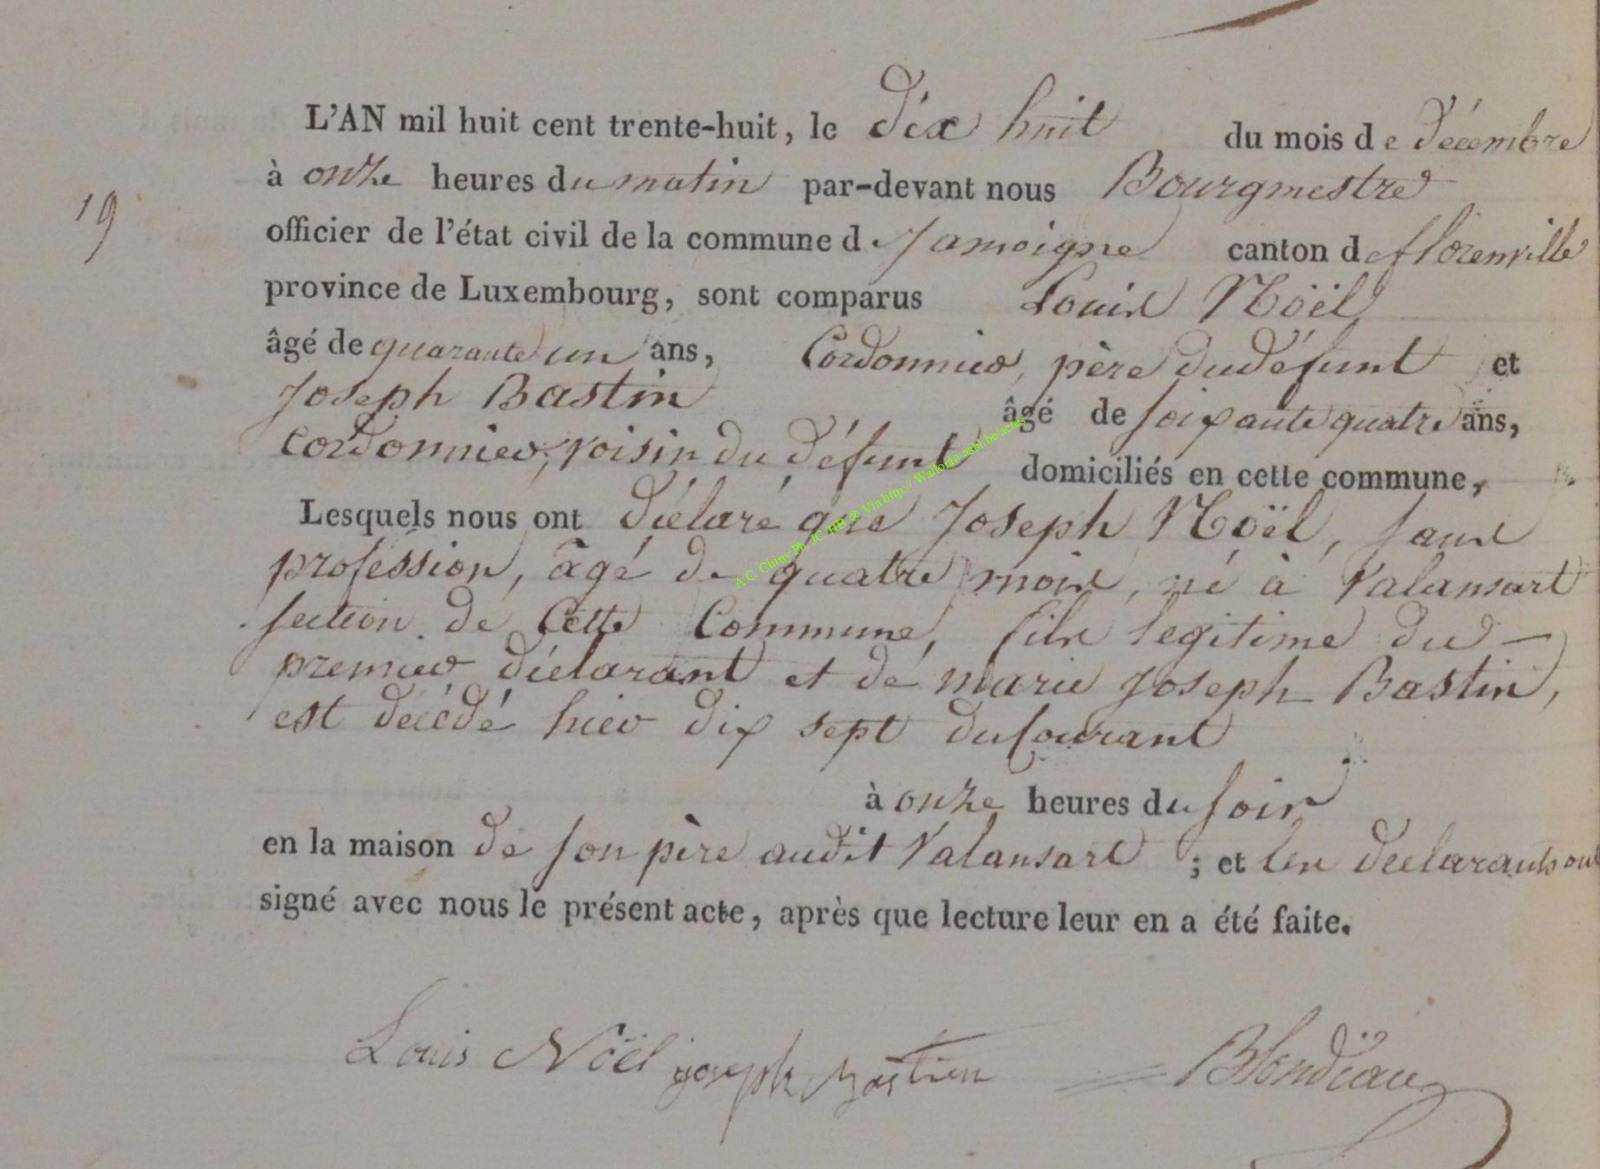 L'AN mil huit cent trente-huit, le dix huit du mois de décembre
à onze heures du matin par-devant nous Bourgmestre
19
officier de l'état civil de la commune d Jamoigne canton de florenville
province de Luxembourg, sont comparus Louis Nöël
âgé de quarante un ans, Cordonnier, père du défunt et
Joseph Bastin âgé de soixante quatre ans,
Cordonnier, voisin du défunt domiciliés en cette commune,
Lesquels nous ont déclaré que Joseph Noël, sans
profession, âgé de quatre mois, né à Valansart
section de Cette Commune, fils legitime du
premier déclarant et de marie Joseph Bastin,
est décédé hier dix sept du courant
à onze heures du soir
en la maison de son père audit Valansart ; et les déclarants ont
signé avec nous le présent acte, après que lecture leur en a été faite.
Louis Nöël joseph Bastien Blondiau